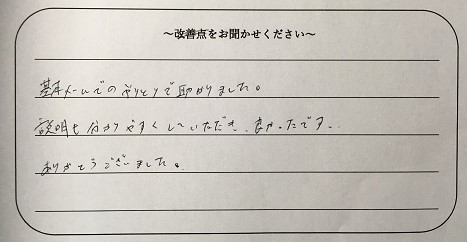 ～改善点をお聞かせください～
基本メールでのやりとりで助かりました。
説明も分かりやすくしていただき、良かったです。
ありがとうございました。